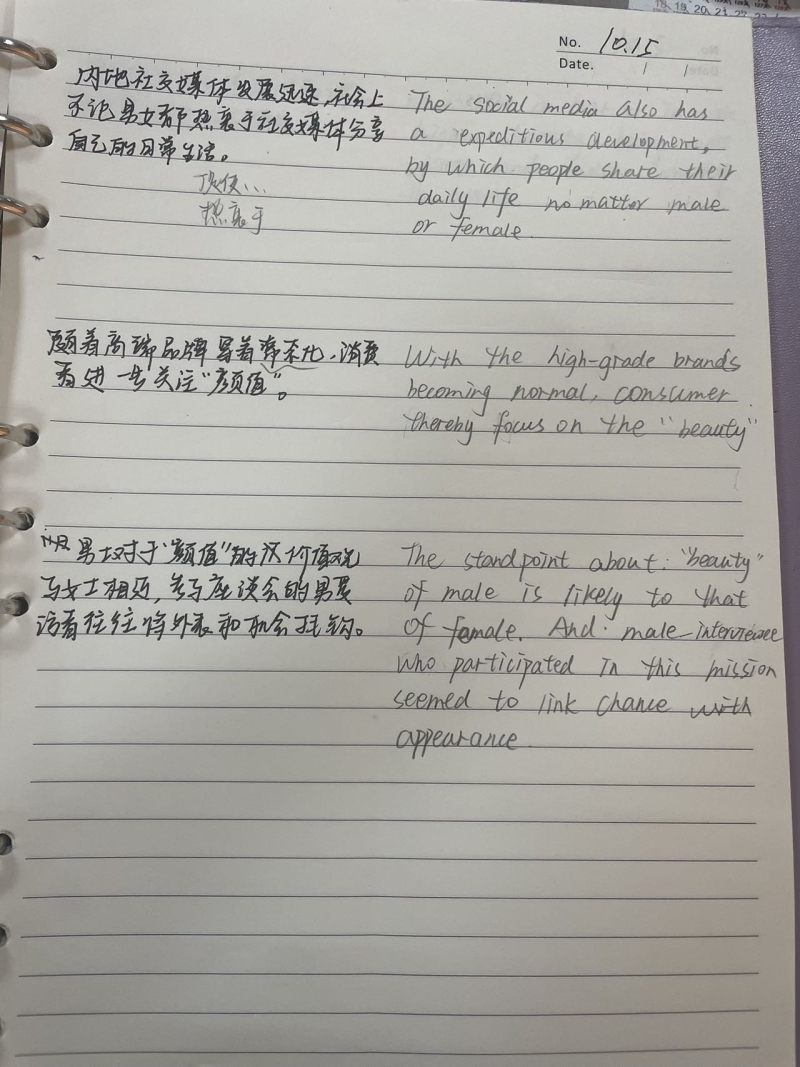 18 19 20 21 22
No. 10.15
Date. / /
内地社交媒体发展迅速,社会上
不论男女都热衷于社交媒体分享
自己的日常生活。
热衷于
The social media also has
a expeditious development,
by which people share their
daily life no matter male
or female.
随着高端品牌 着常态化,消费
者进一步关注“颜值”。
With the high-grade brands
becoming normal, consumer
thereby focus on the "beauty"
男士对于“颜值”的 价值观
与女士相近,参与座谈会的男受
访者往往将外表和机会挂钩。
The standpoint about: "beauty"
of male is likely to that
of female. And. male-interviewee
who participated in this mission
seemed to link chance with
appearance.